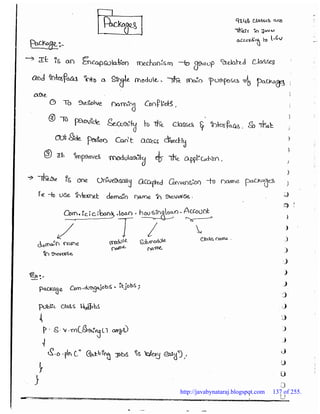 Packages
9246 classes are
their in Java
according to 1.6v
Package:-
→ It is an Encapsulation mechanism to group related classes
and interfaces into a single module. The main purposes of packages
are
① To resolve naming conflicts.
② To provide Security to the classes & interfaces. So that
outside person can't access directly
③ It improves modularity of the application.
→ There is one universally accepted convention to name packages
i.e to use internet domain name in reverse.
Com.icicibank.loan.housingloan.Account
domain name
in reverse
module
name
Submodule
name
Class name
Ex:-
package Com.durgajobs.itjobs;
public class
{
P.S.v.m(String[] args)
{
S.o.pln("Getting jobs is very easy");
}
}
http://javabynataraj.blogspot.com 137 of 255.